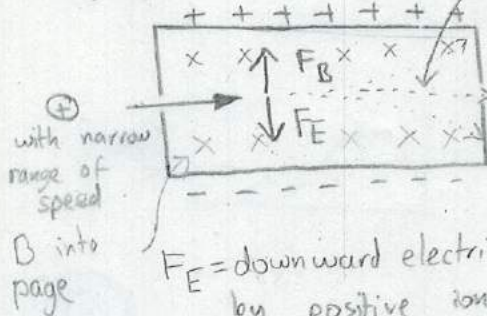 + + + + + + +
× × × × ×
F_B
⊕
F_E
× × × × ×
with narrow
range of
speed
- - - - - - -
B into
page
F_E = downward electri
by positive ion